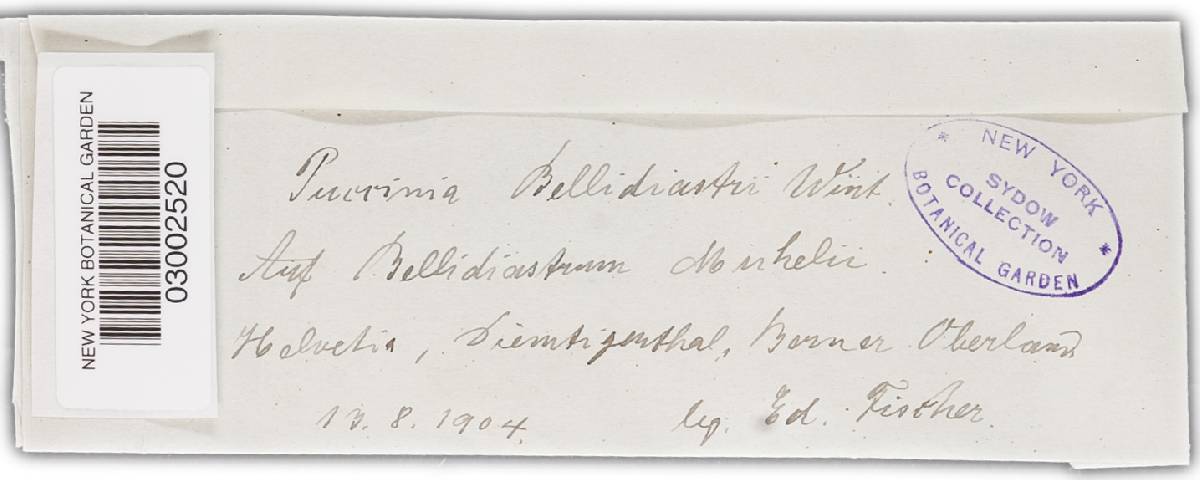 NEW YORK BOTANICAL GARDEN
03002520
Puccinia Bellidiastri Wint.
Auf Bellidiastrum Michelii.
Helvetia, Diemtigenthal, Berner Oberland
13. 8. 1904. leg. Ed. Fischer.
* NEW YORK *
SYDOW
COLLECTION
BOTANICAL GARDEN